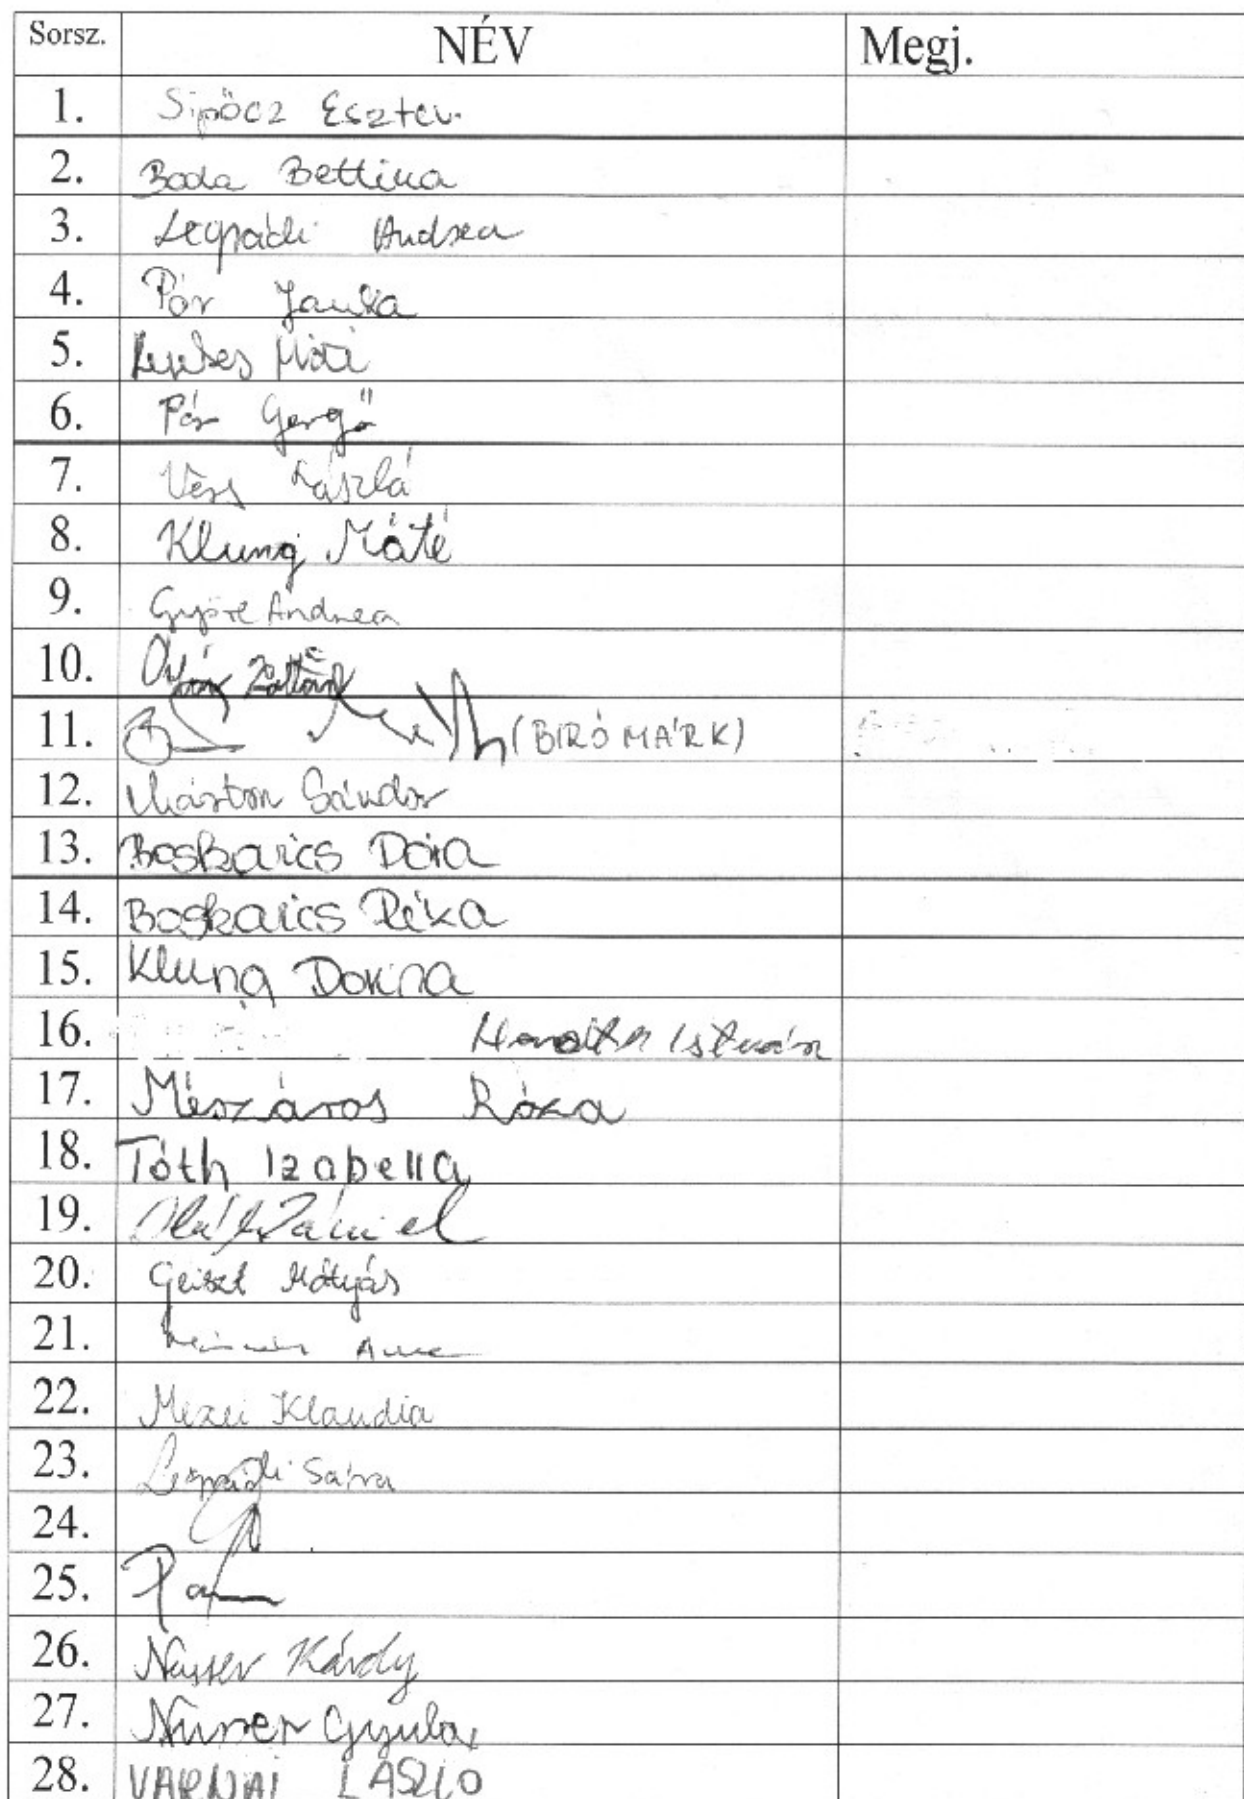 Sorsz. NÉV Megj.
1. Sipőcz Eszter
2. Boda Bettina
3. Legrádi Andrea
4. Pór Janka
5. Máté
6. Pór Gergő
7. László
8. Klung Máté
9. Győre Andrea
10. Zoltán
11. (BIRÓ MÁRK)
12. Márton Sándor
13. Boskaics Dóra
14. Boskaics Réka
15. Klung Dorina
16. István
17. Mészáros Róza
18. Tóth Izabella
19. Oláh Dániel
20. Geiszt Mátyás
21.
22. Mezei Klaudia
23. Legrádi Sára
24.
25.
26. Nusser Károly
27. Nusser Gyula
28. VÁRNAI LÁSZLÓ